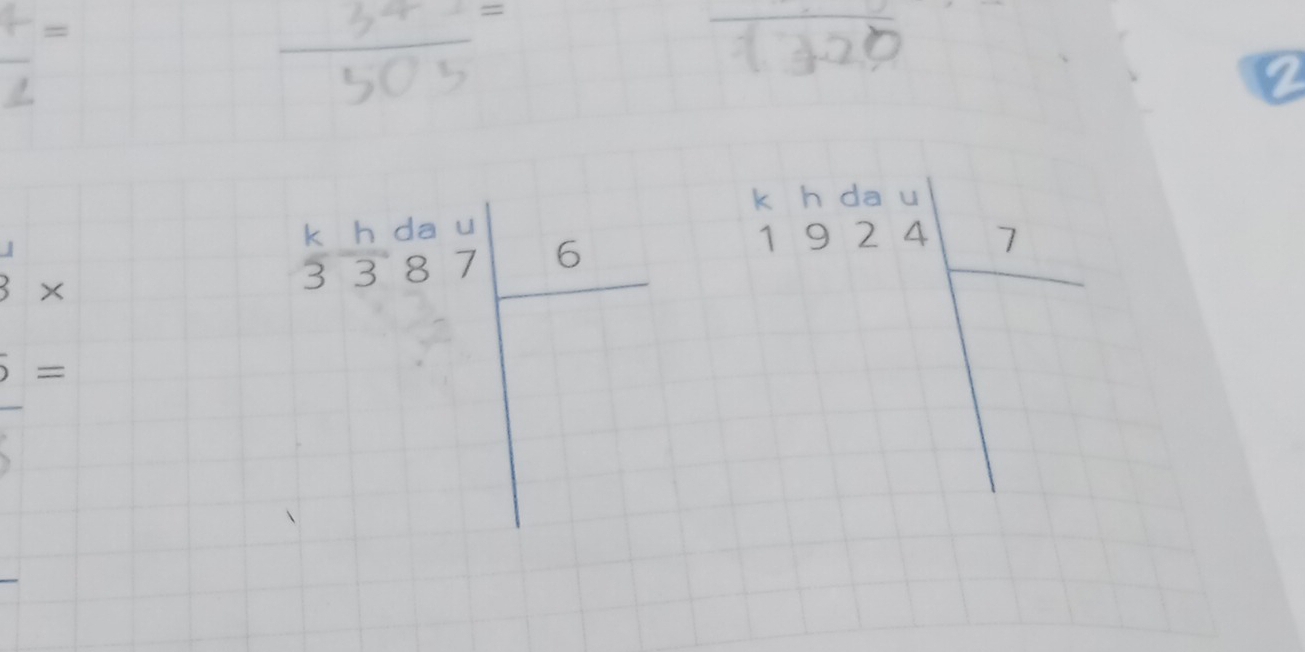 =
34 =
505
1320
2
k h da u
3 3 8 7 6
k h da u
1 9 2 4 7
×
=